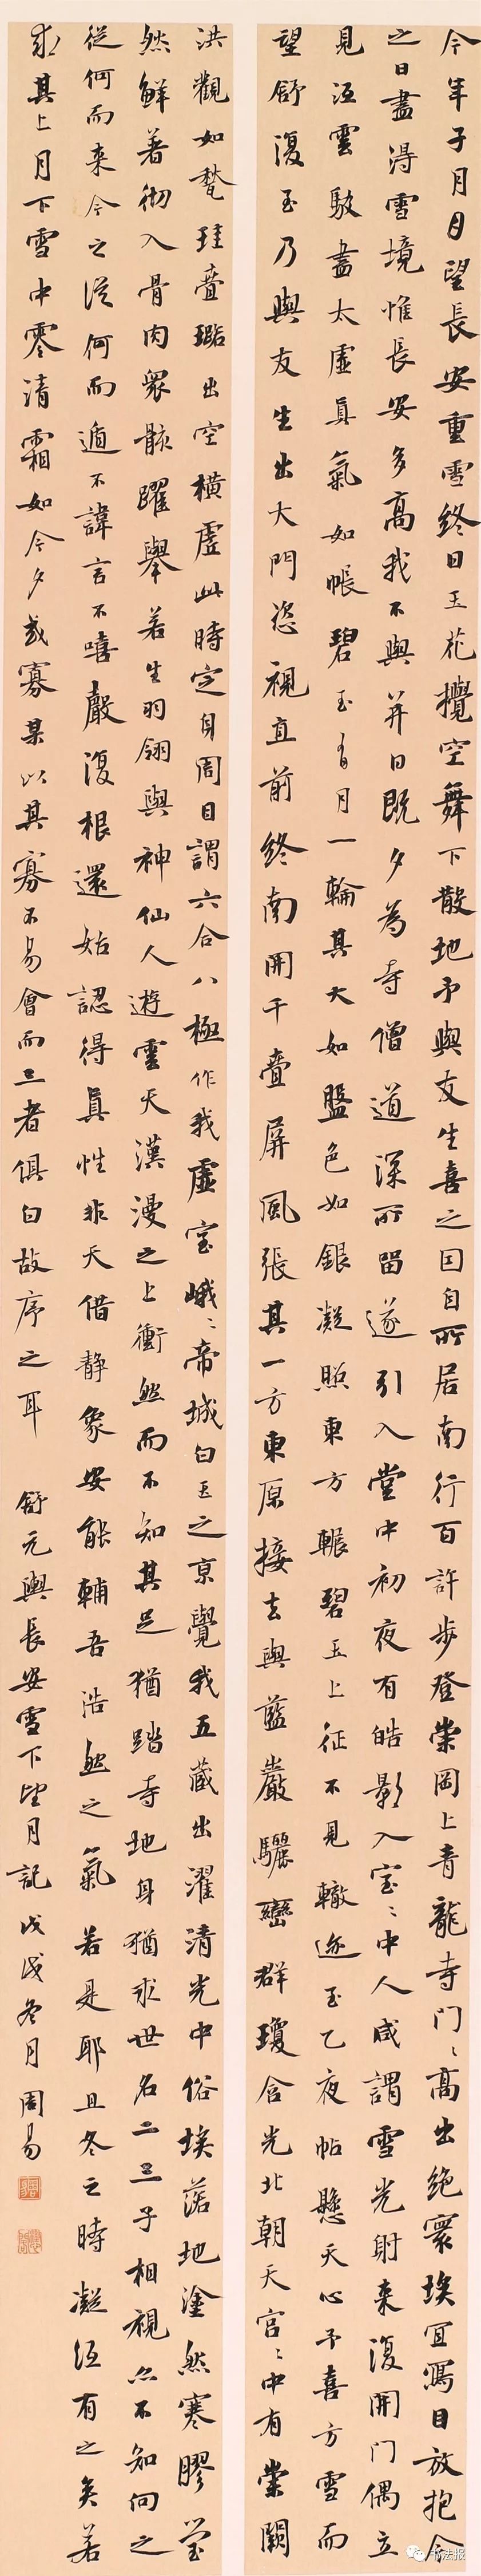 今年子月月望長安重雪終日玉花攪空舞下散地予與友生喜之因自所居南行百許步登崇岡上青龍寺門〻高出絕寰埃宜寫目放抱今
之日盡得雪境惟長安多高我不與并日既夕為寺僧道深所留遂引入堂中初夜有皓影入室〻中人咸謂雪光射來復開門偶立
見沍雲駮盡太虛真氣如帳碧玉有月一輪其大如盤色如銀凝照東方輾碧玉上征不見轍迹至乙夜帖懸天心予喜方雪而
望舒復至乃與友生出大門恣視直前終南開千疊屏風張其一方東原接去與藍巖驪巒群瓊含光北朝天宮〻中有崇闕
洪觀如甃珪疊璐出空橫虛此時定身周目謂六合八極作我虛室峨〻帝城白玉之京覺我五藏出濯清光中俗埃落地塗然寒膠瑩
然鮮著徹入骨肉眾骸躍舉若生羽翎與神仙人遊雲天漢漫之上衝然而不知其足猶蹋寺地身猶求世名二三子相視亦不知向之
從何而来今之從何而遁不諱言不嘻聲復根還始認得真性非天借靜象安能輔吾浩然之氣若是耶且冬之時凝沍有之矣若
求其上月下雪中零清霜如今夕或寡某以其寡不易會而三者俱白故序之耳 舒元輿長安雪下望月記 戊戌冬月周易
书法报